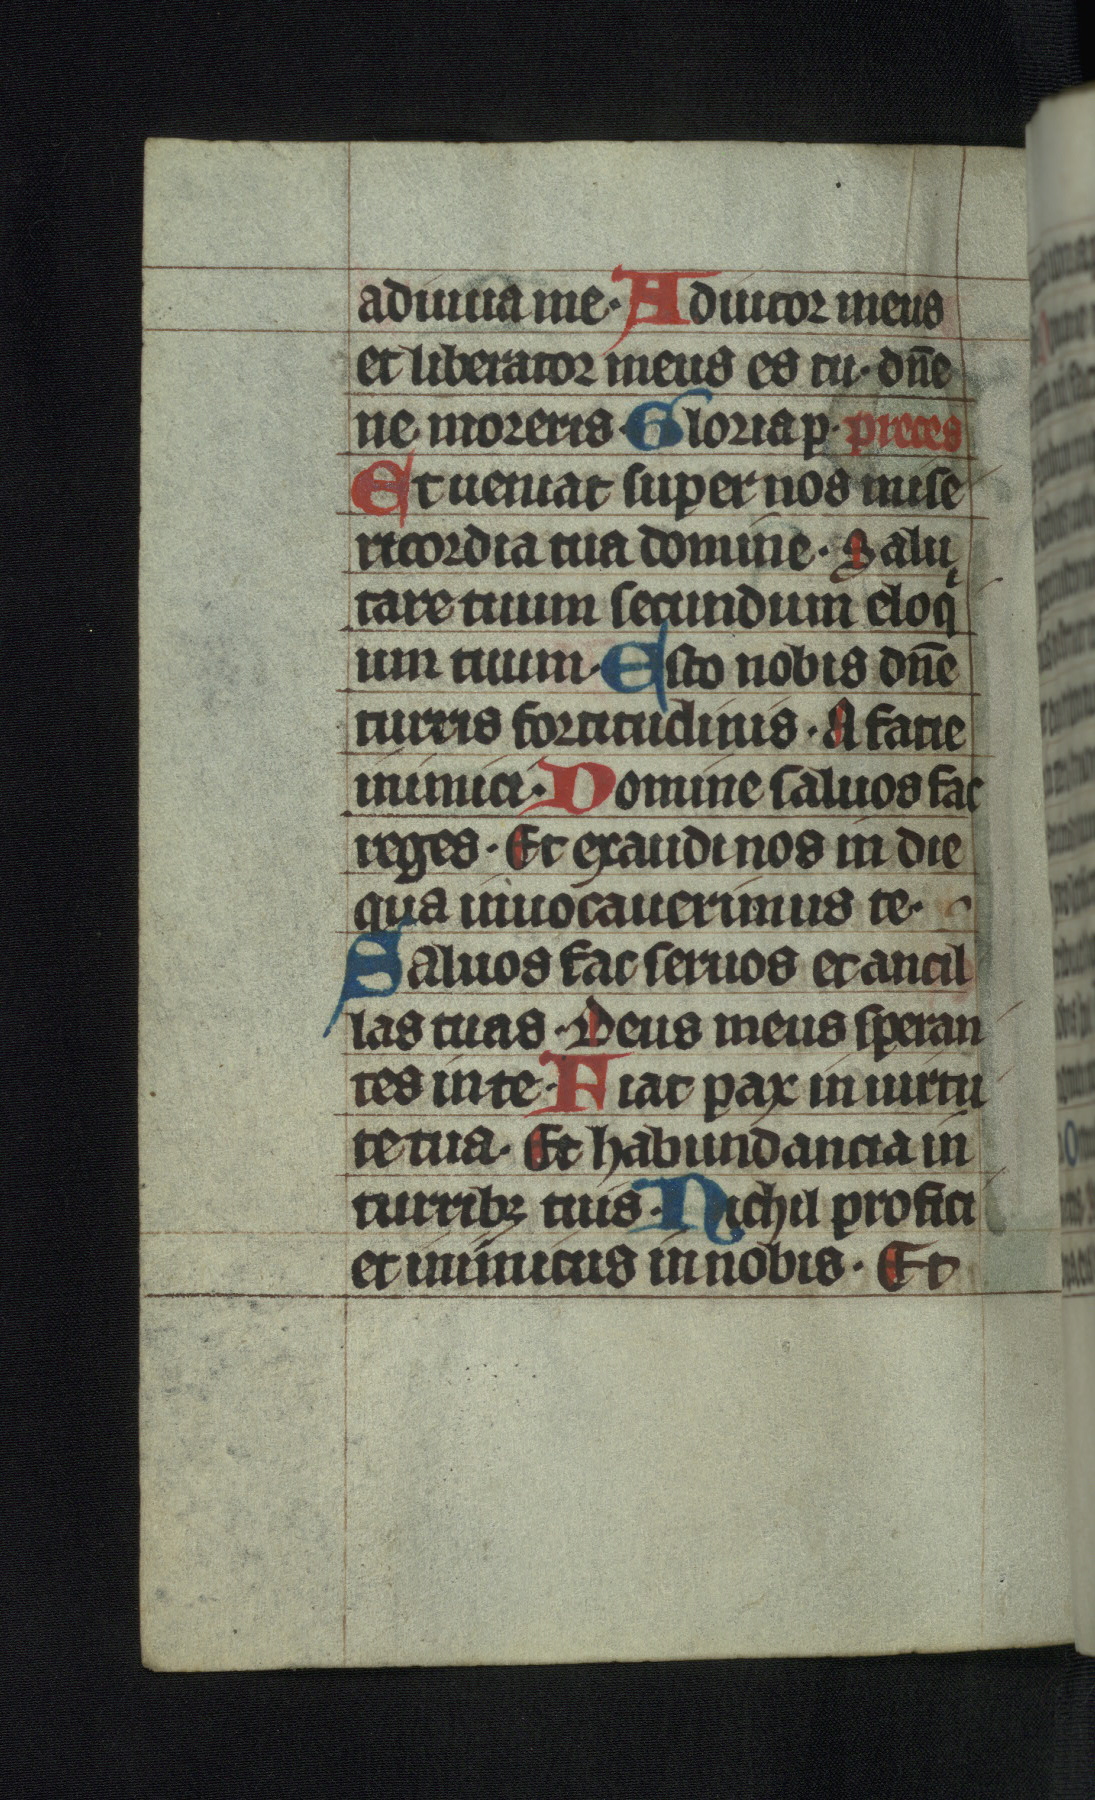 adiuua me · Adiutor meus
et liberator meus es tu · dn̄e
ne moreris · Gloria p · preces
Et ueniat super nos mise
ricordia tua domine · Salu
tare tuum secundum eloqͥ
um tuum · Esto nobis dn̄e
turris fortitudinis · A facie
inimici · Domine saluos fac
reges · Et exaudi nos in die
qua inuocauerimus te ·
Saluos fac seruos et ancil
las tuas · Deus meus speran
tes in te · Fiat pax in uirtu
te tua · Et habundancia in
turribꝫ tuis · Nichil profici
et inimicus in nobis · Et